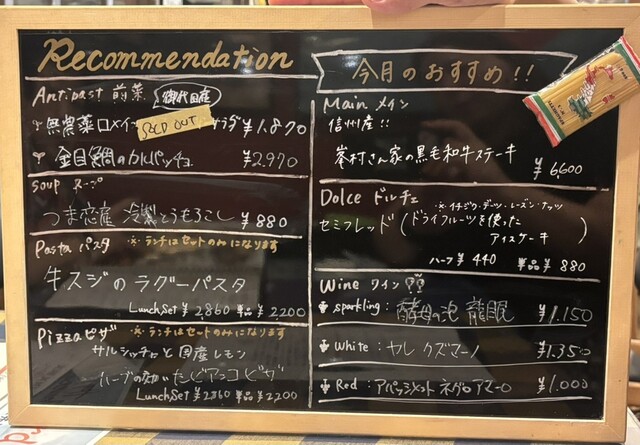 Recommendation
Antipast 前菜 御代田産
無農薬ロメイン SOLD OUT サラダ ¥1.870
金目鯛のカルパッチョ ¥2.970
Soup スープ
つま恋産 冷製とうもろこし ¥880
Pasta パスタ ※ランチはセットのみになります
牛スジのラグーパスタ
Lunch Set ¥2860 単品 ¥2200
Pizza ピザ ※ランチはセットのみになります
サルシッチャと国産レモン
ハーブの効いたビアンコピザ
Lunch Set ¥2860 単品 ¥2200
今月のおすすめ!!
Main メイン
信州産!!
峯村さん家の黒毛和牛ステーキ
¥6600
Dolce ドルチェ
※イチジク・デーツ・レーズン・ナッツ
セミフレッド(ドライフルーツを使った
アイスケーキ)
ハーフ ¥440 単品 ¥880
Wine ワイン
Sparkling: 酵母の泡 龍眼 ¥1.150
White: ヤレ クズマーノ ¥1.350
Red: アパッシメント ネグロアマーロ ¥1.000